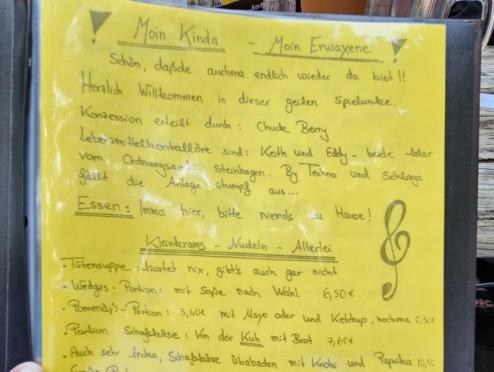 Moin Kinda - Moin Erwaxene
Schön, daßde auchma endlich wieder da bist!!
Herzlich Willkommen in dieser geilen Spielunke.
Konzession erteilt durch: Chuck Berry
Lebensmittelkontrollöre sind: Keith und Eddy - beide
vom Ordnungsamt Steinhagen. By Techno und Schlaga
fällt die Anlage stumpf aus...
Essen: Imma hier, bitte niemals zu Hause!
Kleinkrams - Nudeln - Allerlei
- Tütensuppe: kostet nix, gibt's auch gar nicht
- Wedges-Portion: mit Soße nach Wahl 6,50€
- Pommes-Portion: 3,40€ mit Mayo oder und Ketchup, nochma
- Portion Schafskäse: Von der Kuh mit Brot
- Auch sehr lecka, Schafskäse übabaden mit Knobi und Paprika